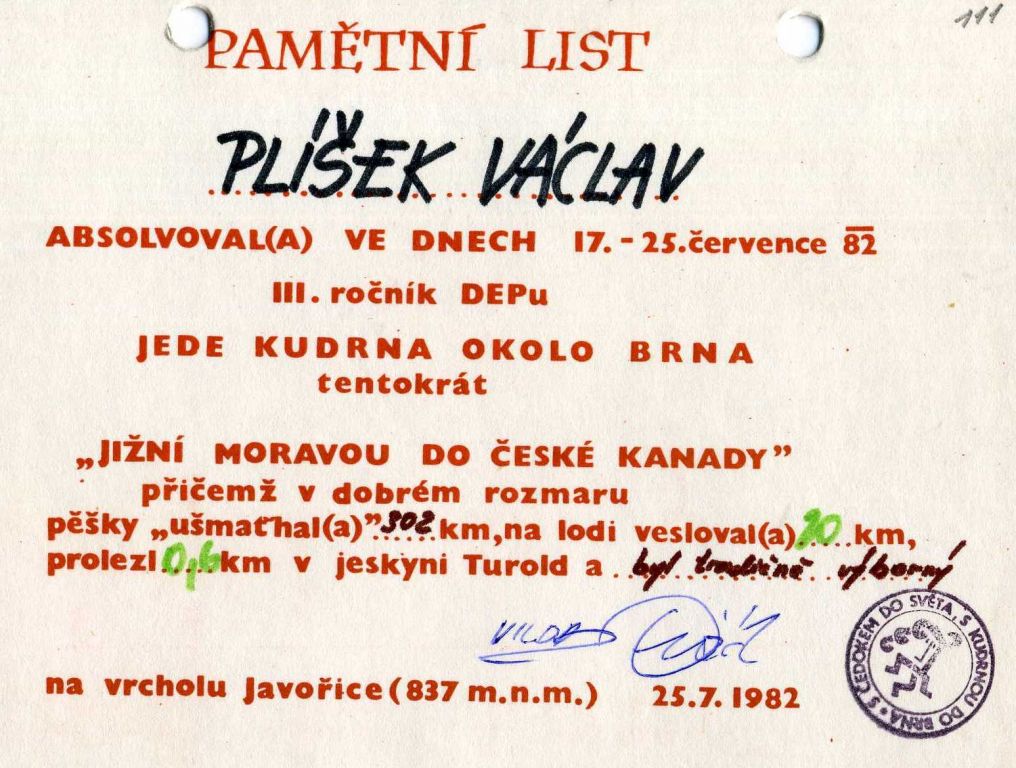 111
PAMĚTNÍ LIST
PLÍŠEK VÁCLAV
ABSOLVOVAL(A) VE DNECH 17.-25.července 82
III. ročník DEPu
JEDE KUDRNA OKOLO BRNA
tentokrát
„JIŽNÍ MORAVOU DO ČESKÉ KANADY”
přičemž v dobrém rozmaru
pěšky „ušmaťhal(a)” 302 km, na lodi vesloval(a) 20 km,
prolezl 0,6 km v jeskyni Turold a byl tradičně výborný
na vrcholu Javořice (837 m.n.m.) 25.7.1982
S ČEDOKEM DO SVĚTA, S KUDRNOU DO BRNA